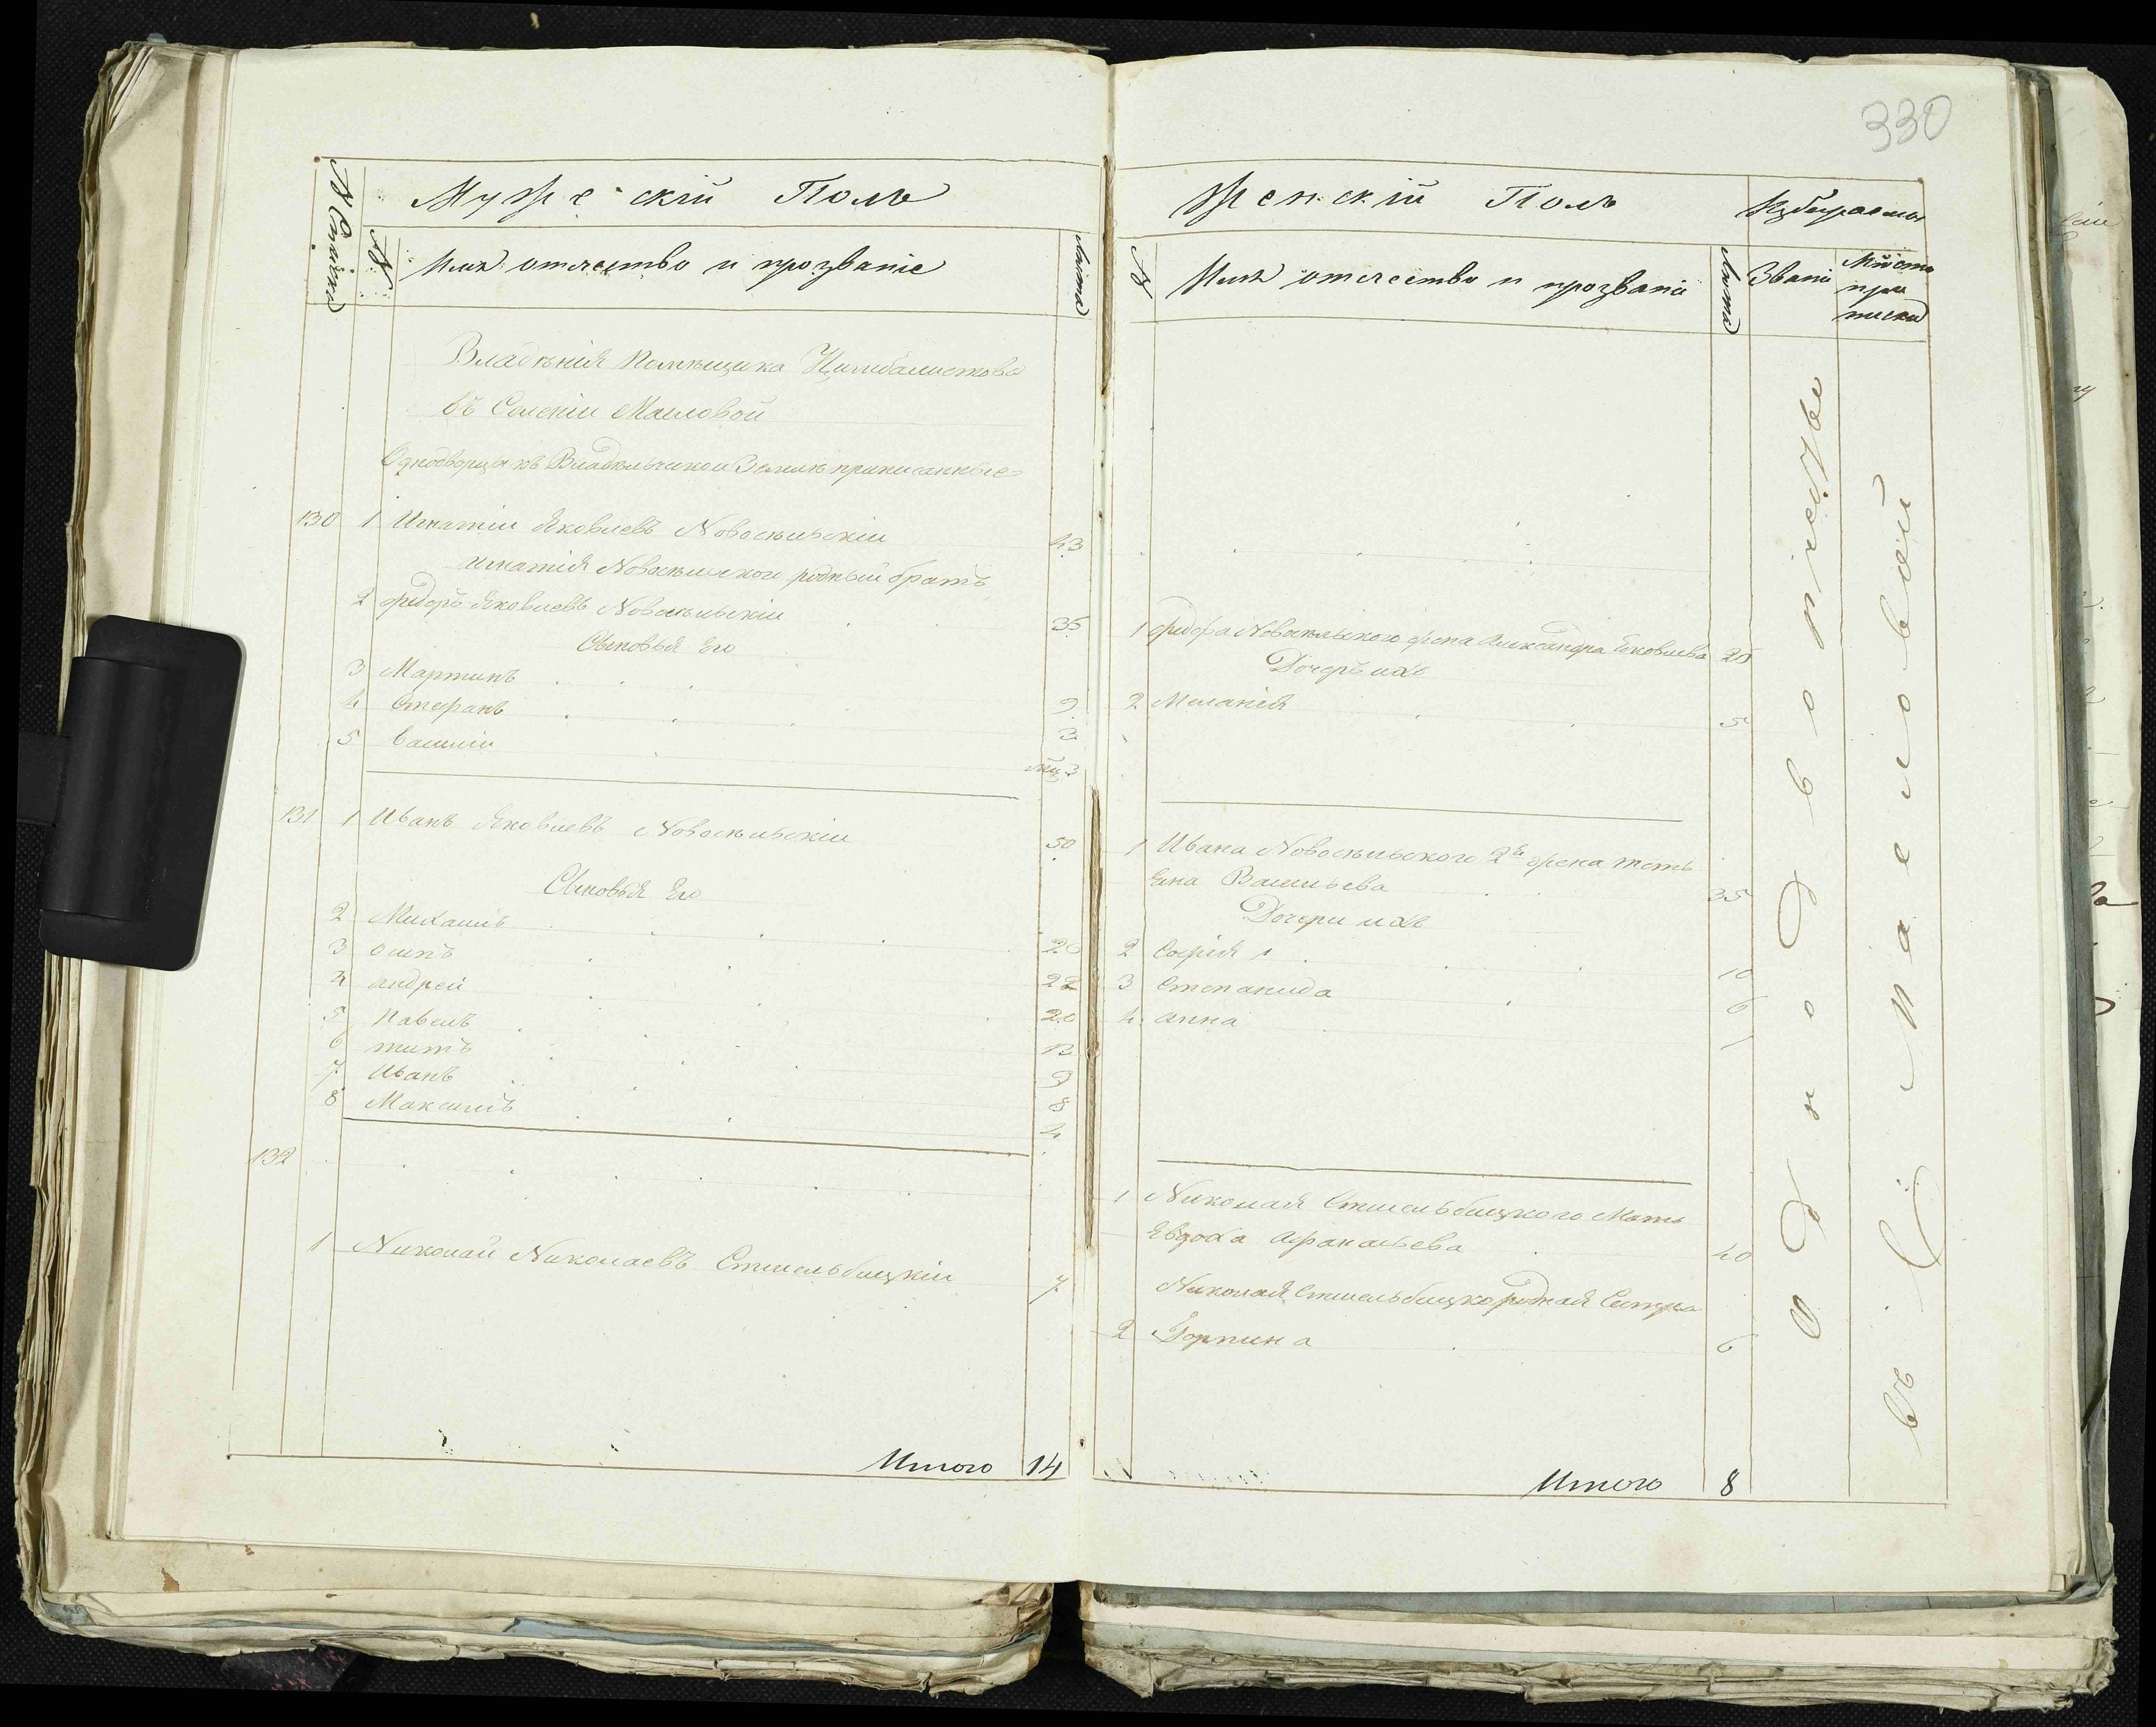 330
№ Списка
Мужескій Полъ
№
Имя отчество и прозваніе
Лѣта
Владѣнія Помѣщика
въ Селеніи Маиловой
Однодворцы къ Владѣльческой Землѣ приписанные
130 1 Игнатій Яковлевъ Новосѣльскій 43
Игнатія Новосѣльского родный братъ
2 Федоръ Яковлевъ Новосѣльскій 36
Сыновья Его
3 Мартинъ 9
4 Стефанъ 3
5 Василій мц 3
131 1 Иванъ Яковлевъ Новосѣльскій 50
Сыновья Его
2 Михаилъ 20
3 Осипъ 22
4 Андрей 20
5 Павелъ 12
6 Титъ 9
7 Иванъ 8
8 Максимъ 4
132
1 Николай Николаевъ Стшельбицкій 7
Итого 14
Женскій Полъ
Избираемы
№
Имя отчество и прозваніе
Лѣта
Званіе
Мѣсто
при
писки
1 Федора Новосѣльского жена Александра Яковлева 25
Дочерь ихъ
2 Меланія 5
1 Ивана Новосѣльского 2я жена
Васильева 35
Дочери ихъ
2 Софія 10
3 Степанида 6
4 Анна 1
1 Николая Стшельбицкого Мать
Евдоха Афанасьева 40
Николая Стшельбицко родная Сестра
2 Горпина 6
Итого 8
Однодворчество
въ С. Маеловой